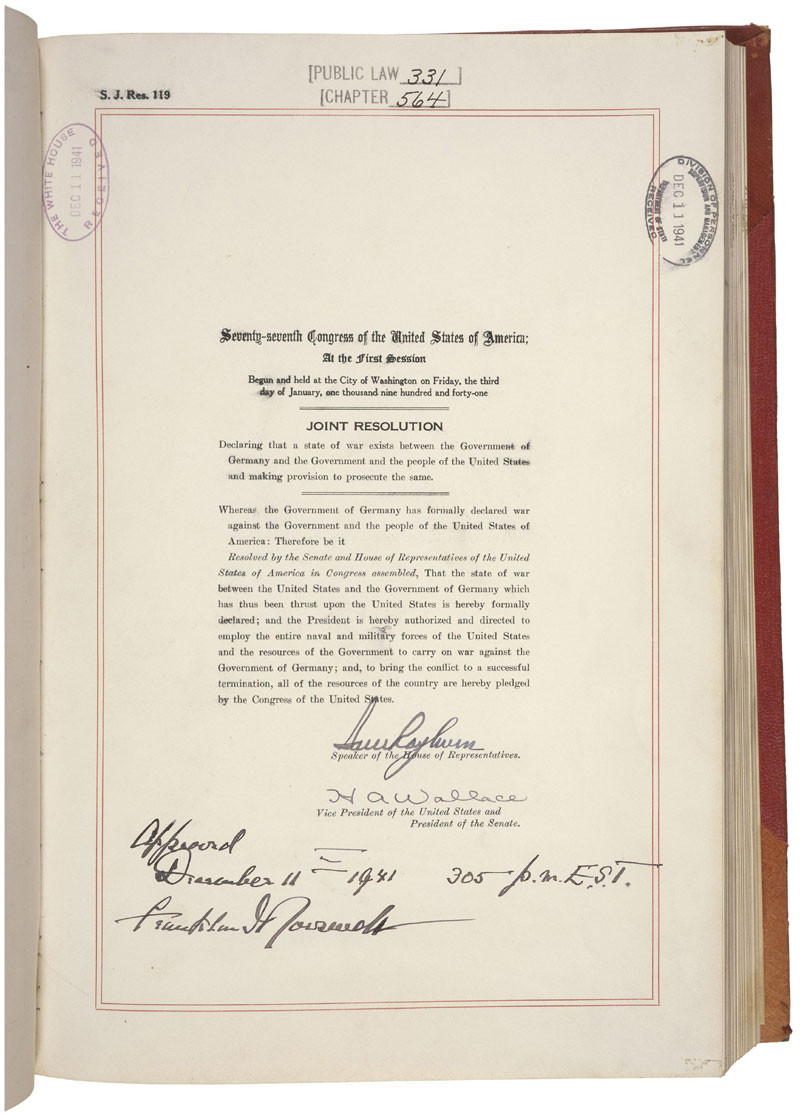 [PUBLIC LAW 331]
[CHAPTER 564]
S. J. Res. 119
THE WHITE HOUSE
DEC 11 1941
RECEIVED
DIVISION OF PERSONNEL
SUPERVISION AND MANAGEMENT
DEC 11 1941
DEPARTMENT OF STATE
RECEIVED
Seventy-seventh Congress of the United States of America;
At the First Session
Begun and held at the City of Washington on Friday, the third
day of January, one thousand nine hundred and forty-one
JOINT RESOLUTION
Declaring that a state of war exists between the Government of
Germany and the Government and the people of the United States
and making provision to prosecute the same.
Whereas the Government of Germany has formally declared war
against the Government and the people of the United States of
America: Therefore be it
Resolved by the Senate and House of Representatives of the United
States of America in Congress assembled, That the state of war
between the United States and the Government of Germany which
has thus been thrust upon the United States is hereby formally
declared; and the President is hereby authorized and directed to
employ the entire naval and military forces of the United States
and the resources of the Government to carry on war against the
Government of Germany; and, to bring the conflict to a successful
termination, all of the resources of the country are hereby pledged
by the Congress of the United States.
Sam Rayburn
Speaker of the House of Representatives.
H A Wallace
Vice President of the United States and
President of the Senate.
Approved
December 11 — 1941 305 p.m. E.S.T.
Franklin D Roosevelt